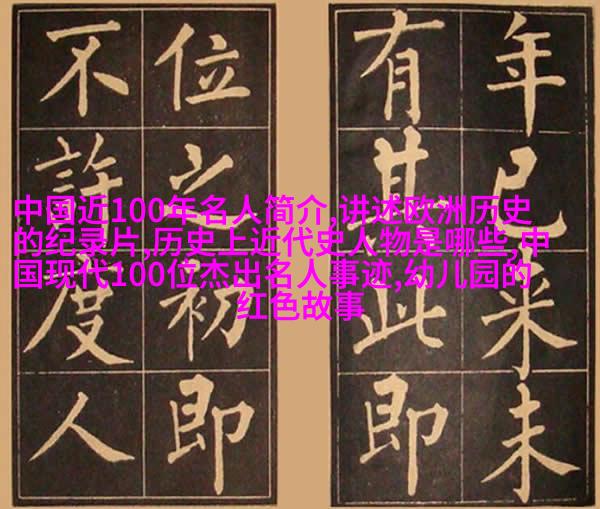 年已来未
有其此即
位之初即
不許度人
中国近100年名人简介,讲述欧洲历史
的纪录片,历史上近代史人物是哪些,中
国现代100位杰出名人事迹,幼儿园的
红色故事